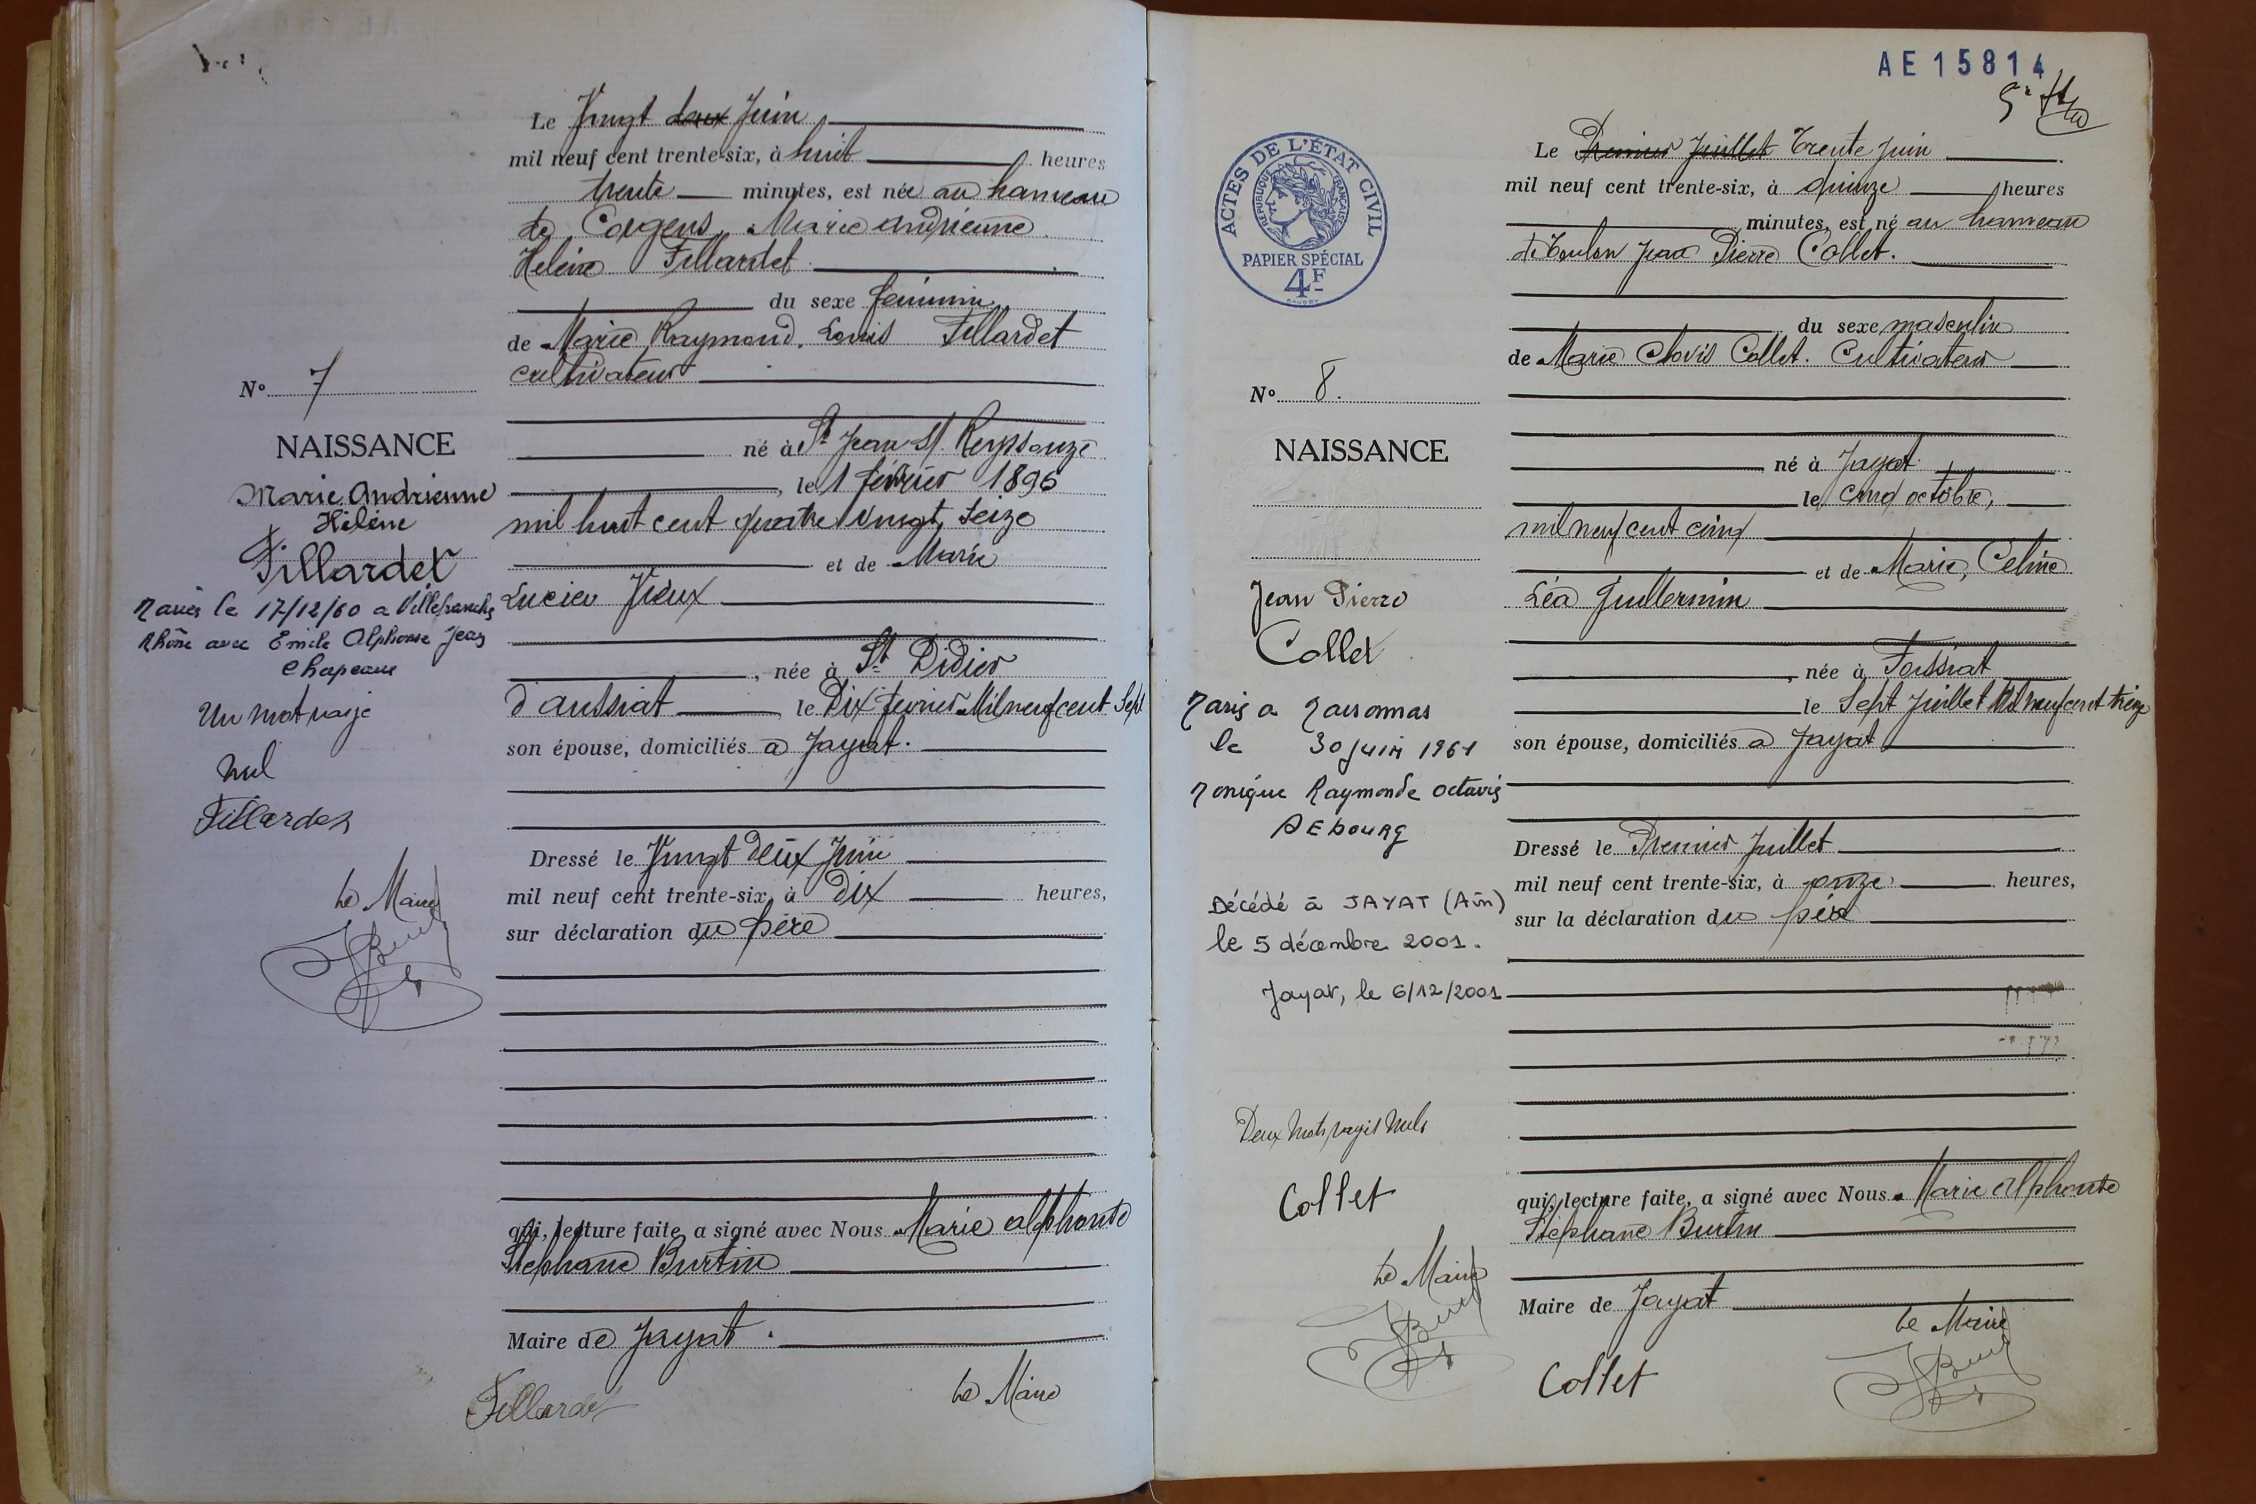 Le Vingt deux Juin
mil neuf cent trente-six, à huit heures
trente minutes, est née au hameau
de Corgens, Marie Andrienne
Helène Fillardet
du sexe feminin
de Marie Raymond, Louis Fillardet
cultivateur
né à St Jean s/ Reyssouze
, le 1 février 1896
mil huit cent quatre vingt, seize
et de Marie
Lucien Vieux
, née à St Didier
d'aussiat le Dix fevrier Mil neuf cent Sept
son épouse, domiciliés à Jayat.
Dressé le Vingt deux Juin
mil neuf cent trente-six, à Dix heures,
sur déclaration du père
qui, lecture faite, a signé avec Nous Marie Alphonse
Stéphane Burtin
Maire de Jayat.
Fillardet
Le Maire
No 7
NAISSANCE
Marie Andrienne
Hélène
Fillardet
Mariée le 17/12/60 a Villefranche
Rhône avec Emile Alphonse Jean
Chapeau
Un mot rayé
nul
Fillardet
Le Maire
AE15814
Le Premier Juillet Trente Juin
mil neuf cent trente-six, à quinze heures
minutes, est né au hameau
de Toulon Jean Pierre Collet.
du sexe masculin
de Marie Clovis Collet. Cultivateur
né à Jayat
le cinq octobre,
mil neuf cent cinq
et de Marie, Celine
Léa Guillermin
, née à Foissiat
le Sept Juillet Mil neuf cent treize
son épouse, domiciliés à Jayat
Dressé le Premier Juillet
mil neuf cent trente-six, à onze heures,
sur la déclaration du père
qui, lecture faite, a signé avec Nous Marie Alphonse
Stéphane Burtin
Maire de Jayat
Le Maire
Collet
ACTES DE L'ÉTAT CIVIL
RÉPUBLIQUE FRANÇAISE
PAPIER SPÉCIAL
4F
No 8.
NAISSANCE
Jean Pierre
Collet
Marié a Marsonnas
le 30 juin 1961
Monique Raymonde Octavie
DEBOURG
Décédé à JAYAT (Ain)
le 5 décembre 2001.
Jayat, le 6/12/2001
Deux mots rayés nuls
Collet
Le Maire